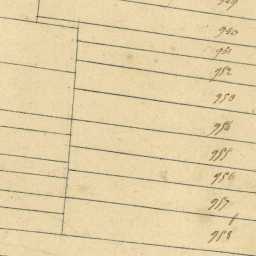 949
950
951
952
953
954
955
956
957
958